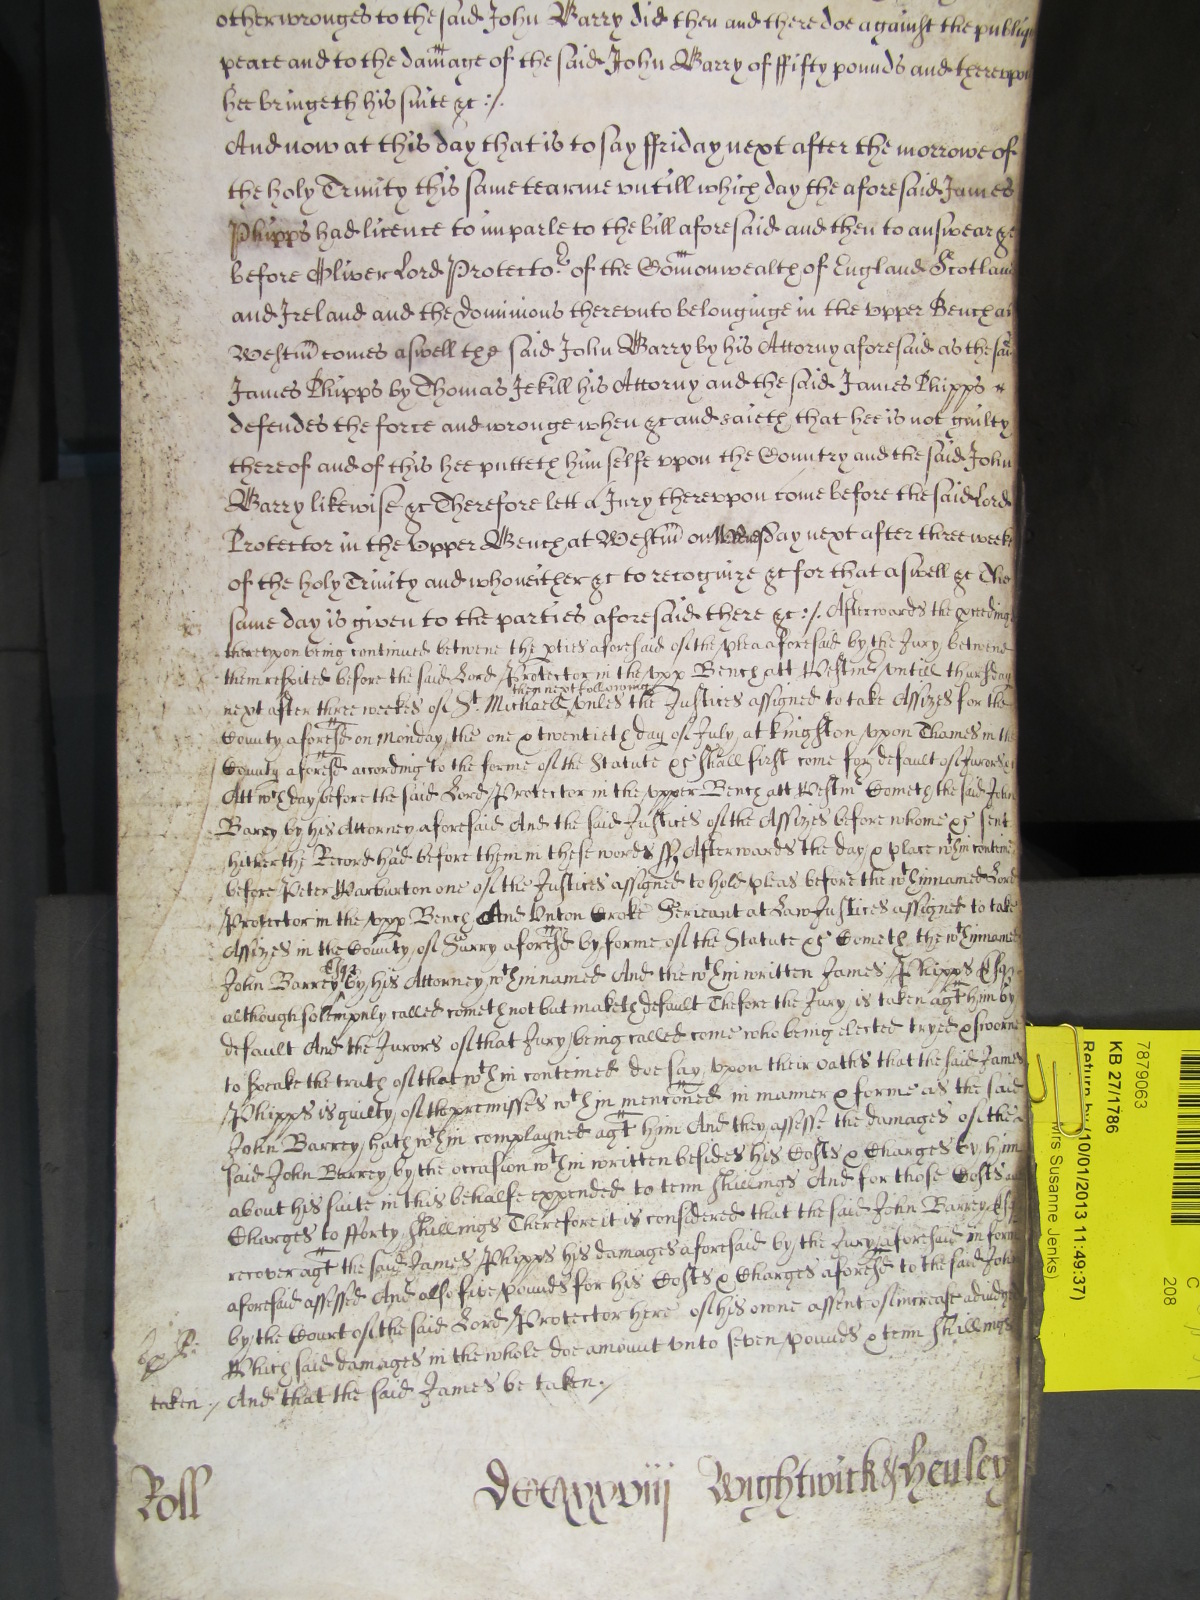 otherwronges to the said John Barry did then and there doe against the publiq
peace and to the damage of the said John Barry of ffifty pounds and therevpon
hee bringeth his suite &c :/.
And now at this day that is to say ffriday next after the morrowe of
the holy Trinity this same tearme vntill which day the aforesaid James
Phipps had licence to imparle to the bill aforesaid and then to answear &c
before Oliver Lord Protector of the Comonwealth of England Scotlan
and Ireland and the Dominions therevnto belonginge in the vpper Bench at
Westm comes aswell the said John Barry by his Attorny aforesaid as the said
James Phipps by Thomas Jekill his Attorny and the said James Phipps
defendes the force and wronge when &c and saieth that hee is not guilty
thereof and of this hee putteth himselfe vpon the Country and the said John
Barry likewise &c Therefore lett a Jury therevpon come before the said Lord
Protector in the vpper Bench at Westm on day next after three weeks
of the holy Trinity and who neither &c to recognize &c for that aswell &c The
same day is given to the parties aforesaid there &c :/. Afterwards the pceedings
therevpon being continued betwene the pties aforesaid of the plea aforesaid by the Jury betwene
them respited before the said Lord Protector in the vpp Bench att Westmr vntill Thursday
then next following
next after three weekes of St. Michaell vnles the Justices assigned to take Assizes for the
County aforesd on Monday the one & twentieth day of July at Kingston vpon Thames in the
County aforesd according to the forme of the Statute &c shall first come for default of Jurors
Att wch day before the said Lord Protector in the vpper Bench att Westmr Cometh the said John
Barry by his Attorney aforesaid And the said Justices of the Assizes before whome &c sent
hither the Record had before them in these words ss Afterwards the day & place wthin conteined
before Peter Warburton one of the Justices assigned to hold pleas before the wthinnamed Lord
Protector in the vpp Bench And Vnton Croke Serieant at Law Justices assigned to take
Assizes in the County of Surry aforesd by forme of the Statute &c Cometh the wthinnamed
Esqr
John Barrey by his Attorney wthinnamed And the wthin written James Phipps Esqr
although solempnly called cometh not but maketh default Therefore the Jury is taken agt him by
default And the Jurors of that Jury being called come who being elected tryed & sworne
to speake the truth of that wthin conteined doe say vpon their oaths that the said James
Phipps is guilty of the premisses wthin menconed in manner & forme as the said
John Barrey hath wthin complayned agt him And they assesse the damages of the
said John Barrey by the occasion wthin written besides his Costs & Charges by him
about his suite in this behalfe expended to tenn shillings And for those Costs &
Charges to fforty shillings Therefore it is considered that the said John Barrey Esqr
recover agt the said James Phipps his damages aforesaid by the Jury aforesaid in forme
aforesaid assessed And also five pounds for his Costs & Charges aforesd to the said John
by the Court of the said Lord Protector here of his owne assent of increase adiudged
Which said damages in the whole doe amount vnto seven pounds & tenn shillings
taken ./ And that the said James be taken ./
Roll DCCxxxviij Wightwick & Henley
7879063
KB 27/1786
Return by (10/01/2013 11:49:37)
Mrs Susanne Jenks)
C
208